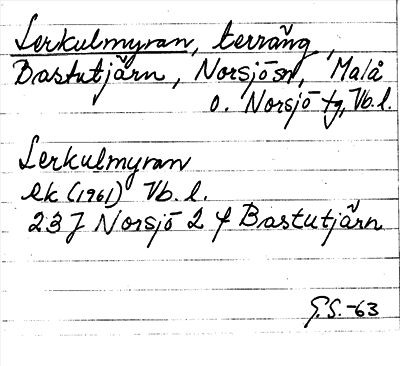 Lerkulmyran, terräng,
Bastutjärn, Norsjö sn, Malå
o. Norsjö tg, Vb. l.
Lerkulmyran
ek (1961) Vb. l.
23 J Norsjö 2 f Bastutjärn
G.S. -63